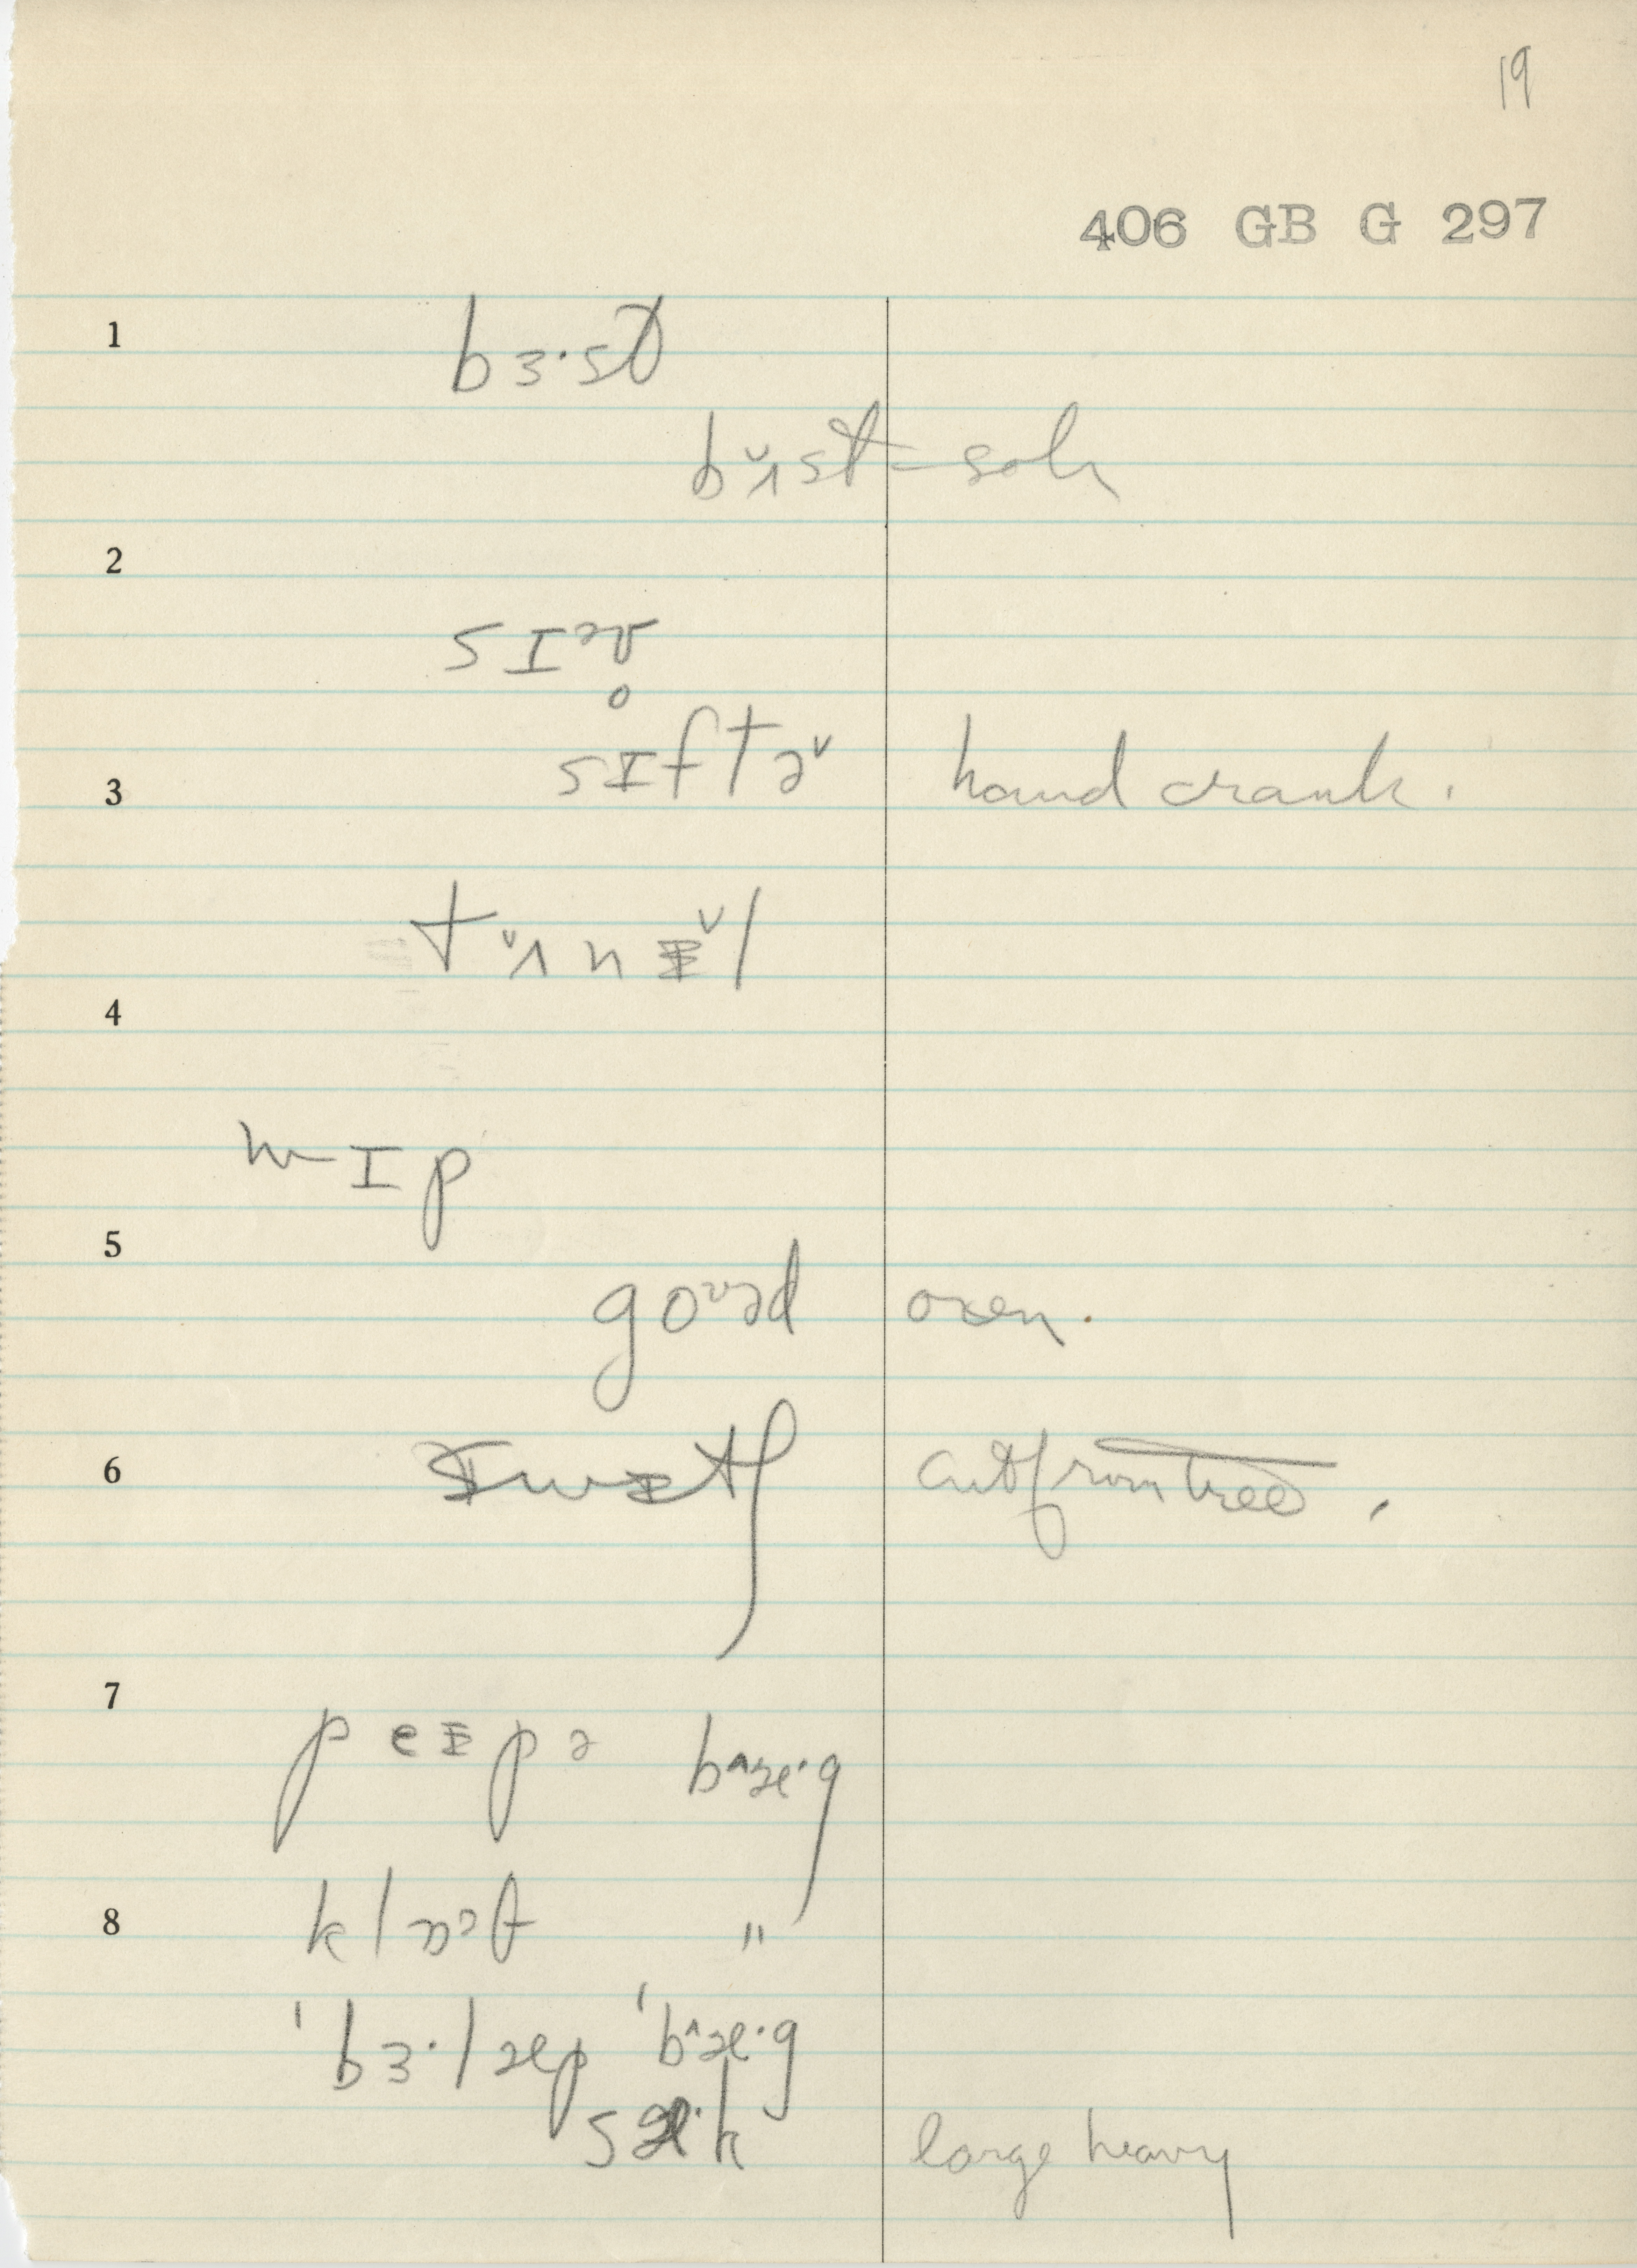 19
406 GB G 297
1
bɜ·st
bʌ˅st = soh
2
sɪəv̥
3
sɪftə˅ hand crank.
tʌ˅nɪ˅l
4
ʍɪp
5
goʊəd oxen.
6
swɪtʃ cut from tree.
7
peɪpə bæ^·g
8
klɒət "
ˈbɜ·læp ˈbæ^·g
sæ·k large heavy